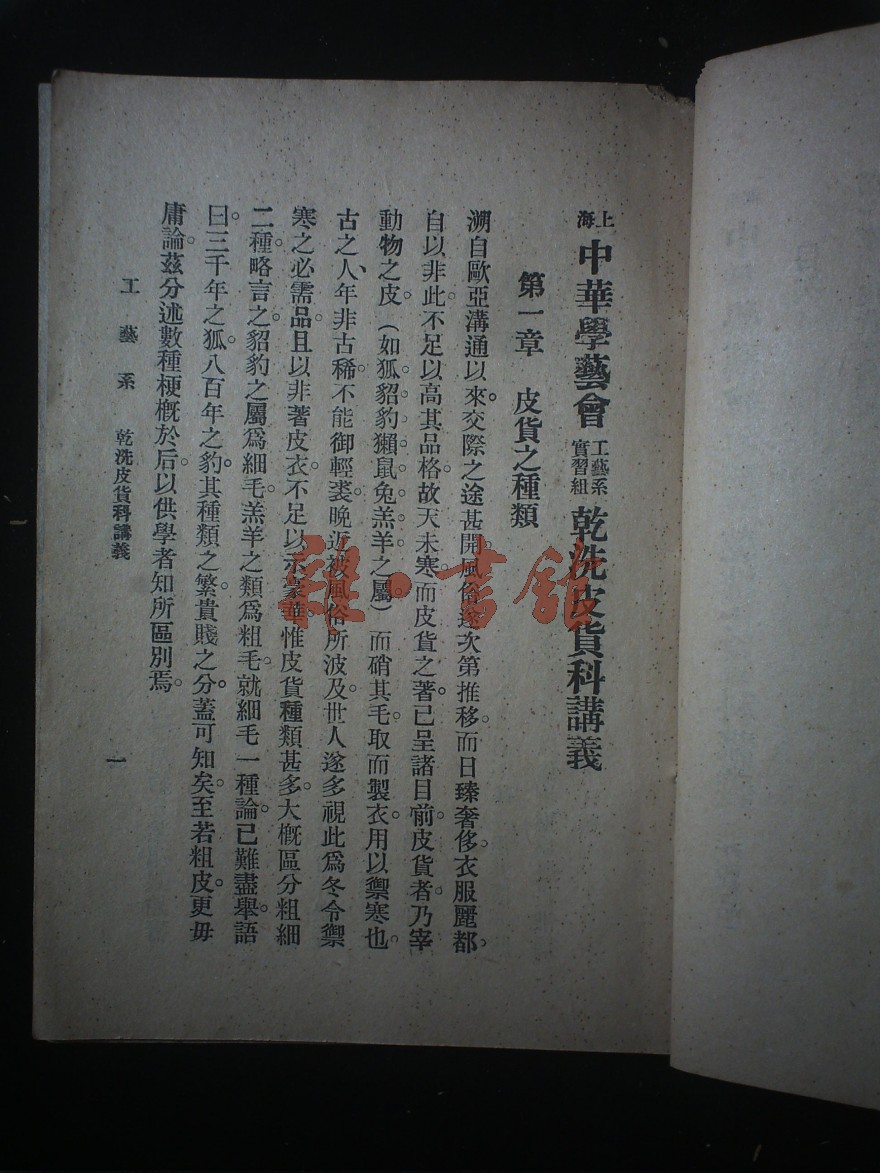 上海 中華學藝會 工藝系實習組 乾洗皮貨科講義
第一章 皮貨之種類
溯自歐亞溝通以來。交際之途甚開。風俗遂次第推移。而日臻奢侈。衣服麗都。
自以非此不足以高其品格。故天未寒。而皮貨之著。已呈諸目前。皮貨者。乃宰
動物之皮(如狐貂豹獺鼠兔羔羊之屬)而硝其毛。取而製衣。用以禦寒也。
古之人、年非古稀。不能御輕裘。晚近被風俗所波及。世人遂多視此爲冬令禦
寒之必需品。且以非著皮衣。不足以示豪華。惟皮貨種類甚多。大概區分粗細
二種。略言之。貂豹之屬爲細毛。羔羊之類爲粗毛。就細毛一種論。已難盡舉。語
曰。三千年之狐。八百年之豹。其種類之繁。貴賤之分。蓋可知矣。至若粗皮。更毋
庸論。茲分述數種梗概於后。以供學者知所區別焉。
工藝系 乾洗皮貨科講義 一
雜·書館